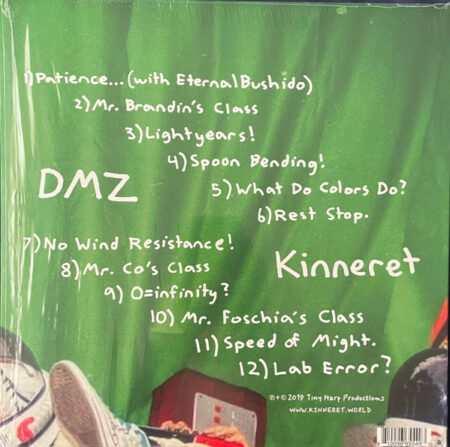 1) Patience... (with EternalBushido)
2) Mr. Brandin's Class
3) Lightyears!
4) Spoon Bending!
DMZ
5) What Do Colors Do?
6) Rest Stop.
7) No Wind Resistance!
8) Mr. Co's Class
Kinneret
9) 0=infinity?
10) Mr. Foschia's Class
11) Speed of Might.
12) Lab Error?
℗+© 2019 Tiny Harp Productions
WWW.KINNERET.WORLD